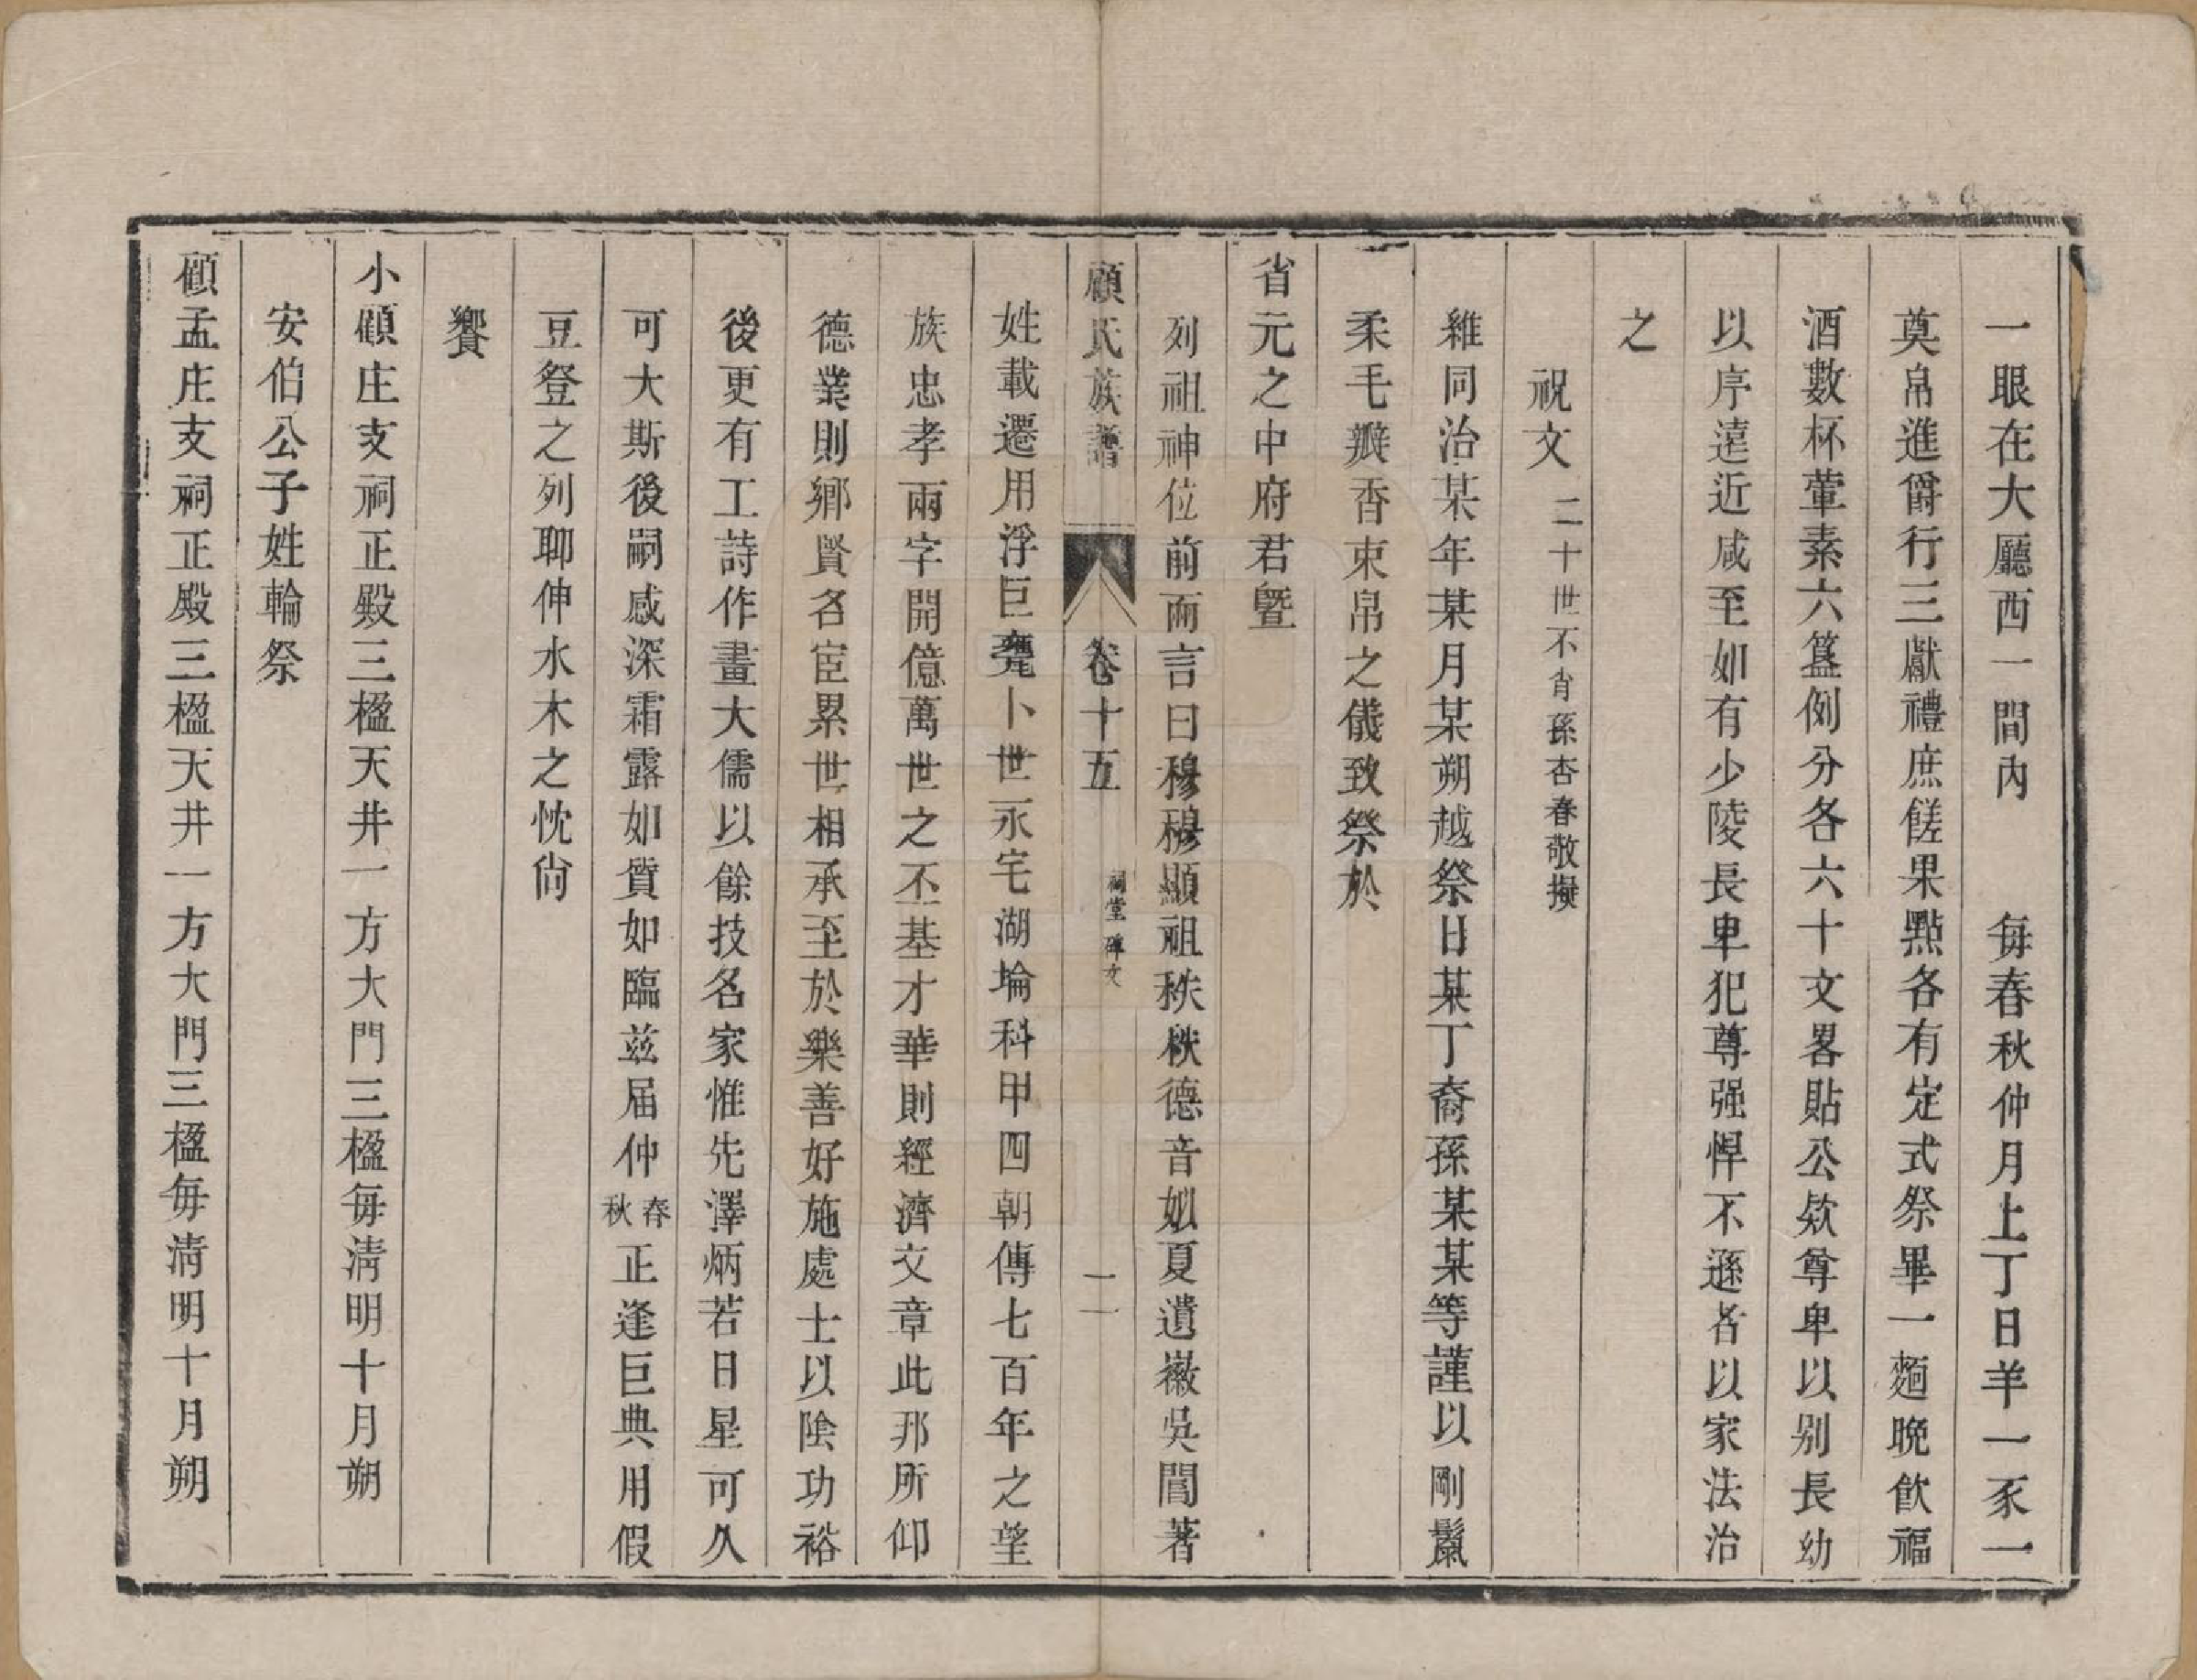 一眼在大廳西一間內　每春秋仲月上丁日羊一豕一
奠帛進爵行三獻禮庶饈果點各有定式祭畢一麵晚飲福
酒數杯葷素六簋例分各六十文畧貼公欵尊卑以别長幼
以序遠近咸至如有少陵長卑犯尊强悍不遜者以家法治
之
祝文 二十世不肖孫杏春敬擬
維同治某年某月某朔越祭日某丁裔孫某某等謹以剛鬣
柔毛瓣香束帛之儀致祭於
省元之中府君曁
列祖神位前而言曰穆穆顯祖秩秩德音姒夏遺徽吳閶著
顧氏族譜　卷十五　祠堂 碑文　二
姓載遷用浮巨䕫卜世永宅湖埨科甲四朝傳七百年之望
族忠孝兩字開億萬世之丕基才華則經濟文章此邦所仰
德業則鄉賢名宦累世相承至於樂善好施處士以陰功裕
後更有工詩作畫大儒以餘技名家惟先澤炳若日星可久
可大斯後嗣感深霜露如質如臨兹届仲春秋正逢巨典用假
豆登之列聊伸水木之忱尙
饗
小顧庄支祠正殿三楹天井一方大門三楹每淸明十月朔
安伯公子姓輪祭
顧孟庄支祠正殿三楹天井一方大門三楹每淸明十月朔